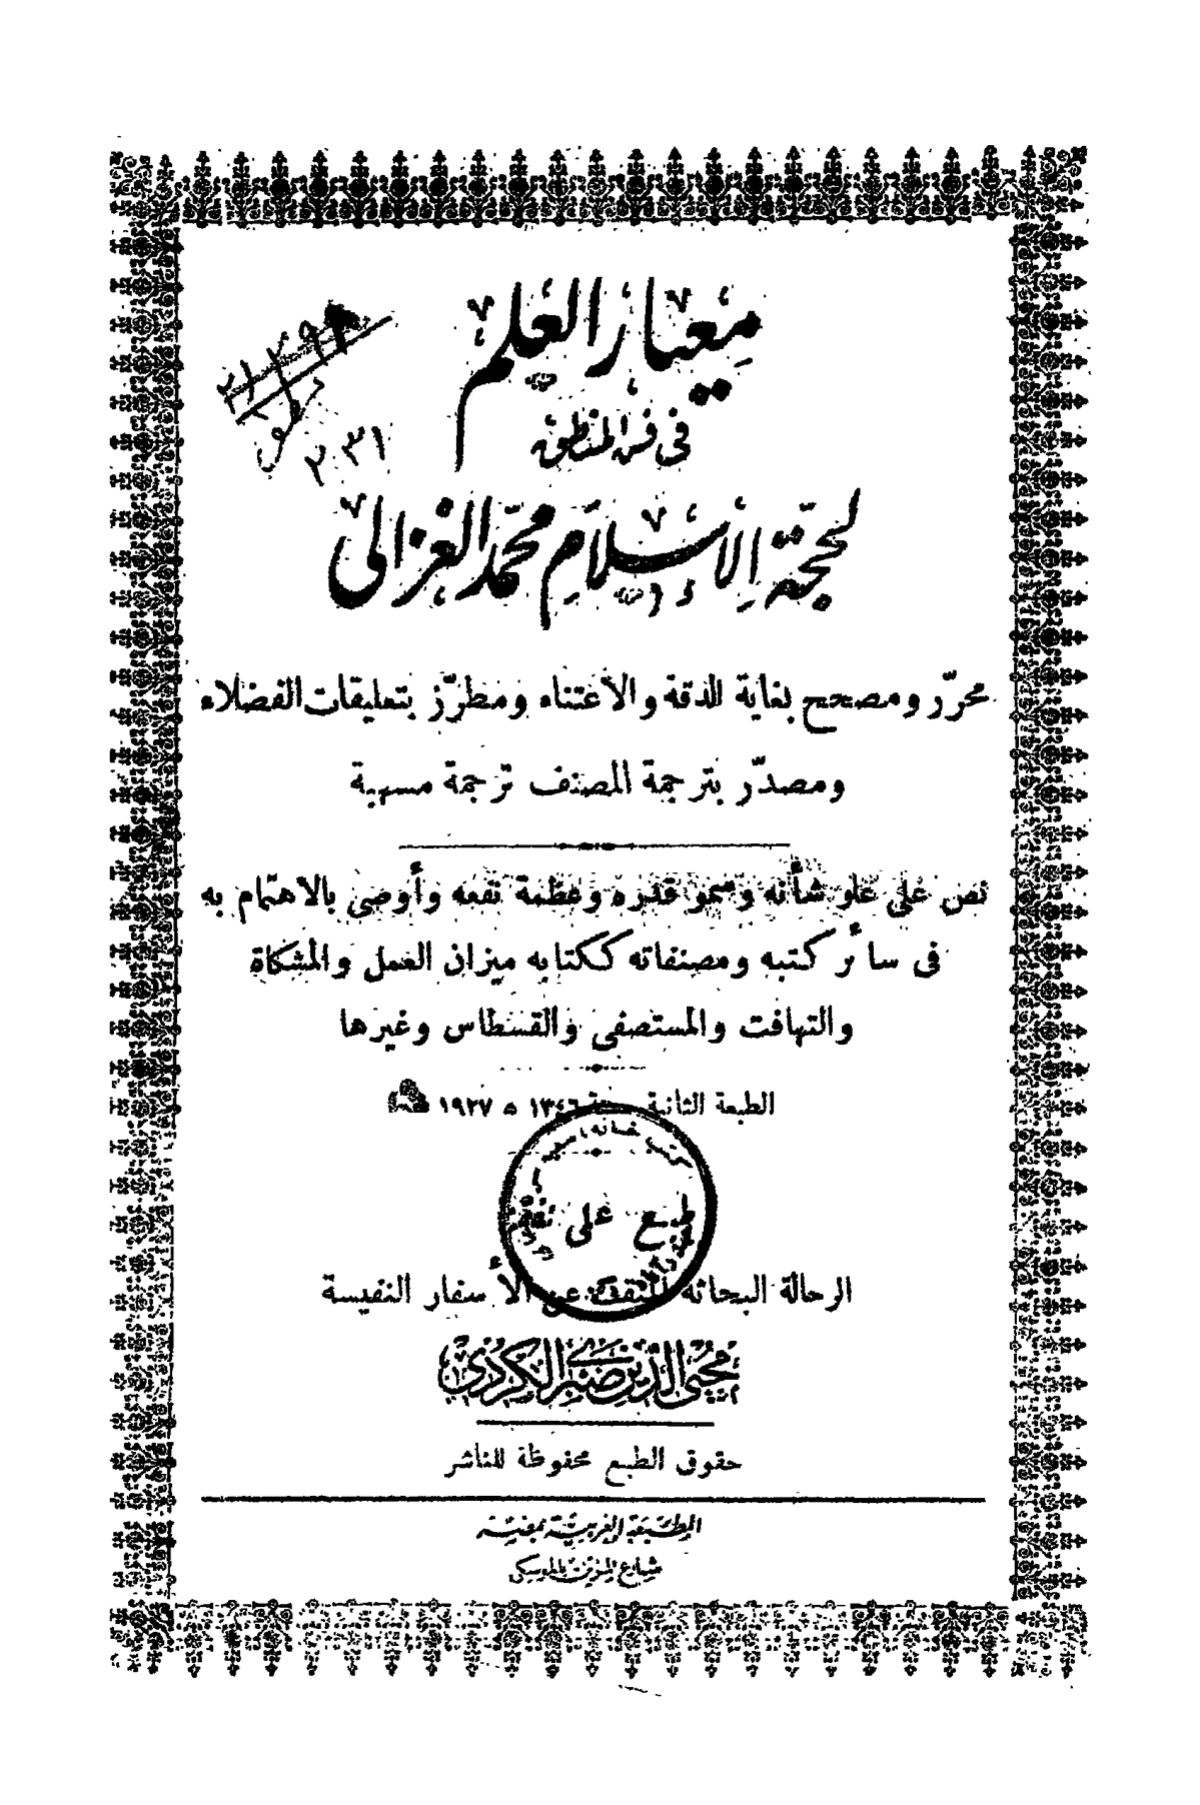 معيار العلم
فى فن المنطق
لحجة الإسلام محمد الغزالى
محرّر ومصحح بغاية الدقة والاعتناء ومطرّز بتعليقات الفضلاء
ومصدّر بترجمة المصنف ترجمة مسهبة
نص على علو شأنه وسمو قدره وعظمة نفعه وأوصى بالاهتمام به
فى سائر كتبه ومصنفاته ككتابه ميزان العمل والمشكاة
والتهافت والمستصفى والقسطاس وغيرها
الطبعة الثانية سنة ١٣٤٦ ه ١٩٢٧
كتب خانه
طبع على نفقة
الرحالة البحاثة المنقب عن الأسفار النفيسة
محيى الدين صبرى الكردى
حقوق الطبع محفوظة للناشر
المطبعة العربية بمصر
شارع بالموسكى
٢٣١